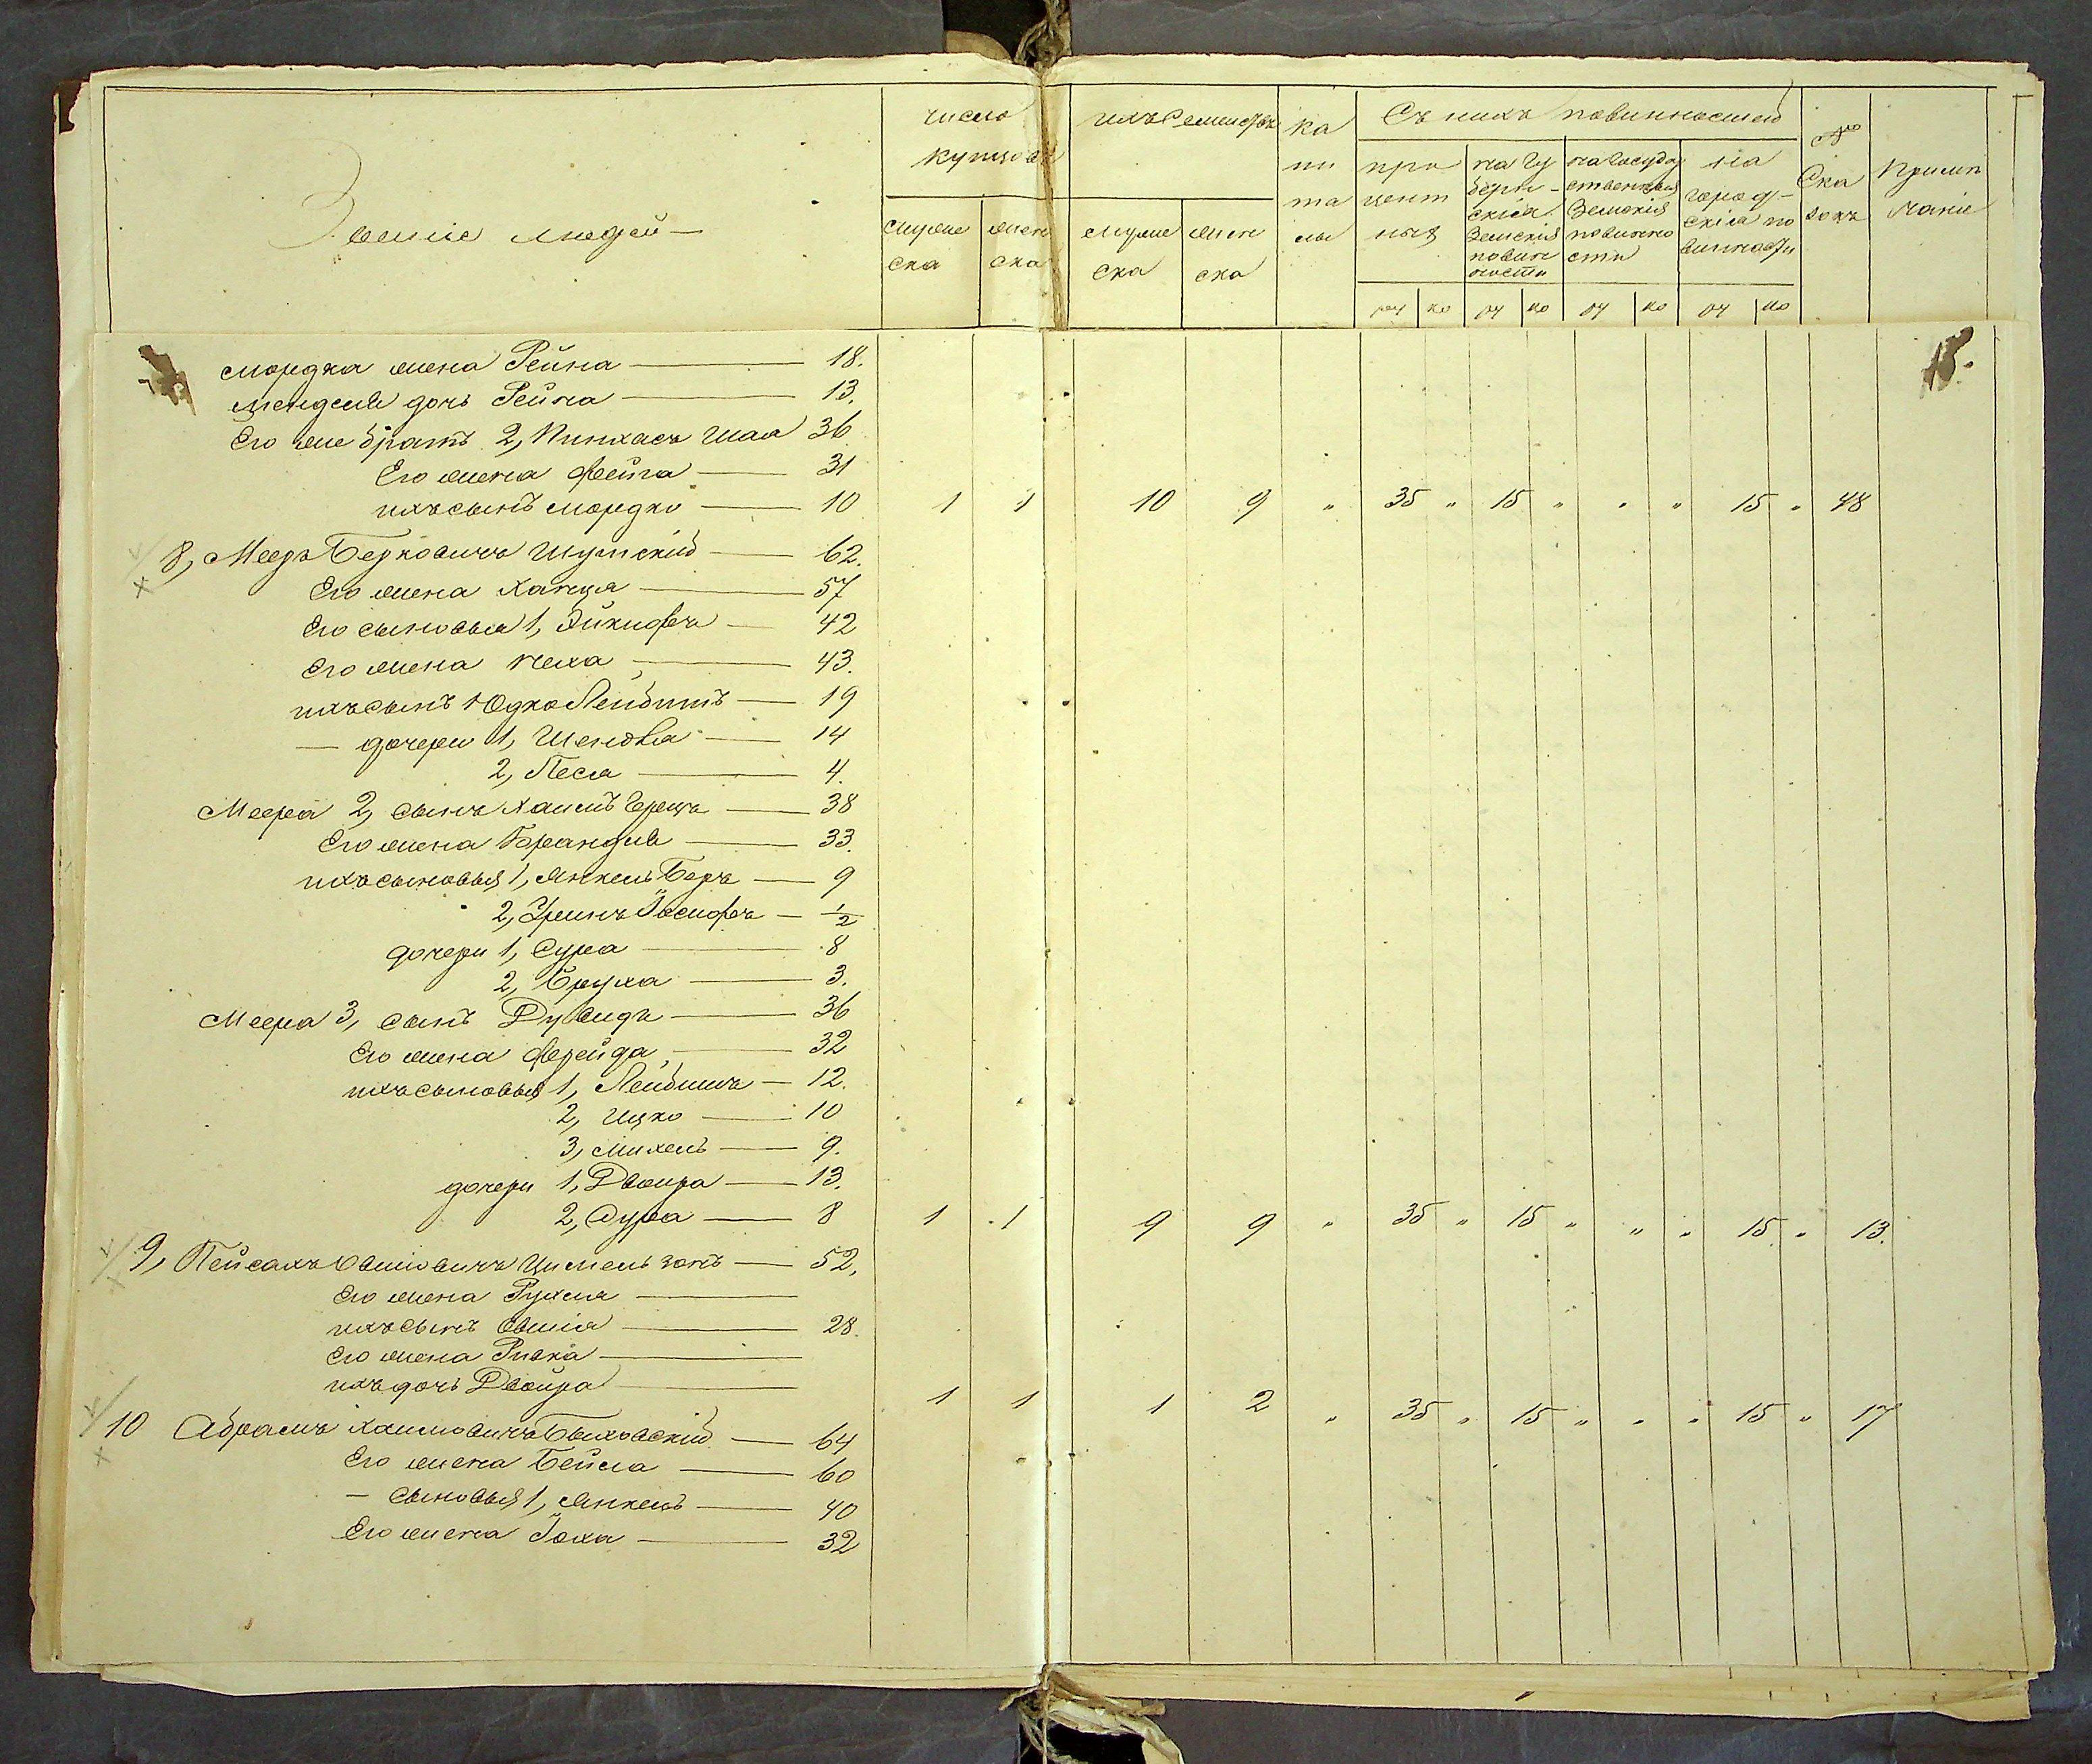 Званіе людей
число купцовъ
мужеска
женска
ихъ Семействъ
мужеска
женска
капиталы
Съ нихъ повинностей
процентныхъ
на губернскія Земскія повинности
на государственныя Земскія повинности
на городскія повинности
ру ко ру ко ру ко ру ко
№ Сказокъ
Примечаніе
15.
Мордка жена Рейна — 18.
Менделя дочь Рейна — 13.
Его же братъ 2, Пинхасъ Шая 36
Его жена Фейга — 31
ихъ сынъ Мордко — 10 1 1 10 9 „ 35 „ 15 „ „ „ 15 „ 48
8, Мееръ Берковичъ Шумскій — 62.
Его жена Ханця — 57
Его сыновья 1, — 42
Его жена Неха — 43.
ихъ сынъ Юдко Лейбишъ — 19
— дочери 1, Шендля — 14
2, Песя — 4.
Меера 2, сынъ Хаимъ Герцъ — 38
Его жена Брандля — 33.
ихъ сыновья 1, Янкель Беръ — 9
2, Іосифъ — 1/2
дочери 1, Сура — 8
2, Бруха — 3.
Меера 3, сынъ Дувидъ — 36
Его жена Фрейда — 32
ихъ сыновья 1, Лейбишъ — 12.
2, Ицко — 10
3, Михель — 9.
дочери 1, Двойра — 13.
2, Сура — 8 1 1 9 9 „ 35 „ 15 „ „ „ 15 „ 13.
9, Пейсахъ Овшіовичъ Цимельзонъ — 52,
Его жена Рухля —
ихъ сынъ Овшія — 28.
Его жена Ривка —
ихъ дочь Двойра — 1 1 1 2 „ 35 „ 15 „ „ „ 15 „ 17
10 Абрамъ Хаимовичъ Быховскій — 64
Его жена Бейла — 60
— сыновья 1, Янкель — 40
Его жена Іоха — 32